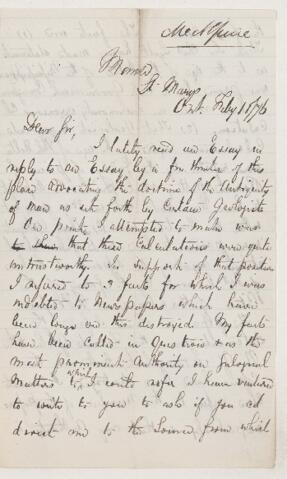 St. Marys
Ont. Feby 16/76
Dear Sir,
I lately read an Essay in
reply to an Essay by a
of this
place advocating the doctrine of the Antiquity
of man as set forth by Certain Geologists
One point I attempted to make was
that these Calculations were quite
untrustworthy. In support of that position
I referred to 2 facts for which I was
indebted to Newspapers which have
been long ere this destroyed. My facts
have been called in question & as the
most prominent Authority on
matters to which I could refer I have ventured
to write to you to ask if you cd
direct me to the Source from which